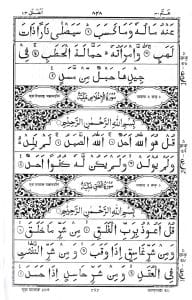 عَنْهُ مَالُهٗ وَمَا كَسَبَ سَيَصْلٰى نَارًا ذَاتَ
لَهَبٍ وَّامْرَاَتُهٗ حَمَّالَةَ الْحَطَبِ فِىْ
جِيْدِهَا حَبْلٌ مِّنْ مَّسَدٍ
بِسْمِ اللّٰهِ الرَّحْمٰنِ الرَّحِيْمِ
قُلْ هُوَ اللّٰهُ اَحَدٌ اَللّٰهُ الصَّمَدُ لَمْ يَلِدْ
وَلَمْ يُوْلَدْ وَلَمْ يَكُنْ لَّهٗ كُفُوًا اَحَدٌ
بِسْمِ اللّٰهِ الرَّحْمٰنِ الرَّحِيْمِ
قُلْ اَعُوْذُ بِرَبِّ الْفَلَقِ مِنْ شَرِّ مَا خَلَقَ
وَمِنْ شَرِّ غَاسِقٍ اِذَا وَقَبَ وَمِنْ شَرِّ النَّفّٰثٰتِ
فِى الْعُقَدِ وَمِنْ شَرِّ حَاسِدٍ اِذَا حَسَدَ